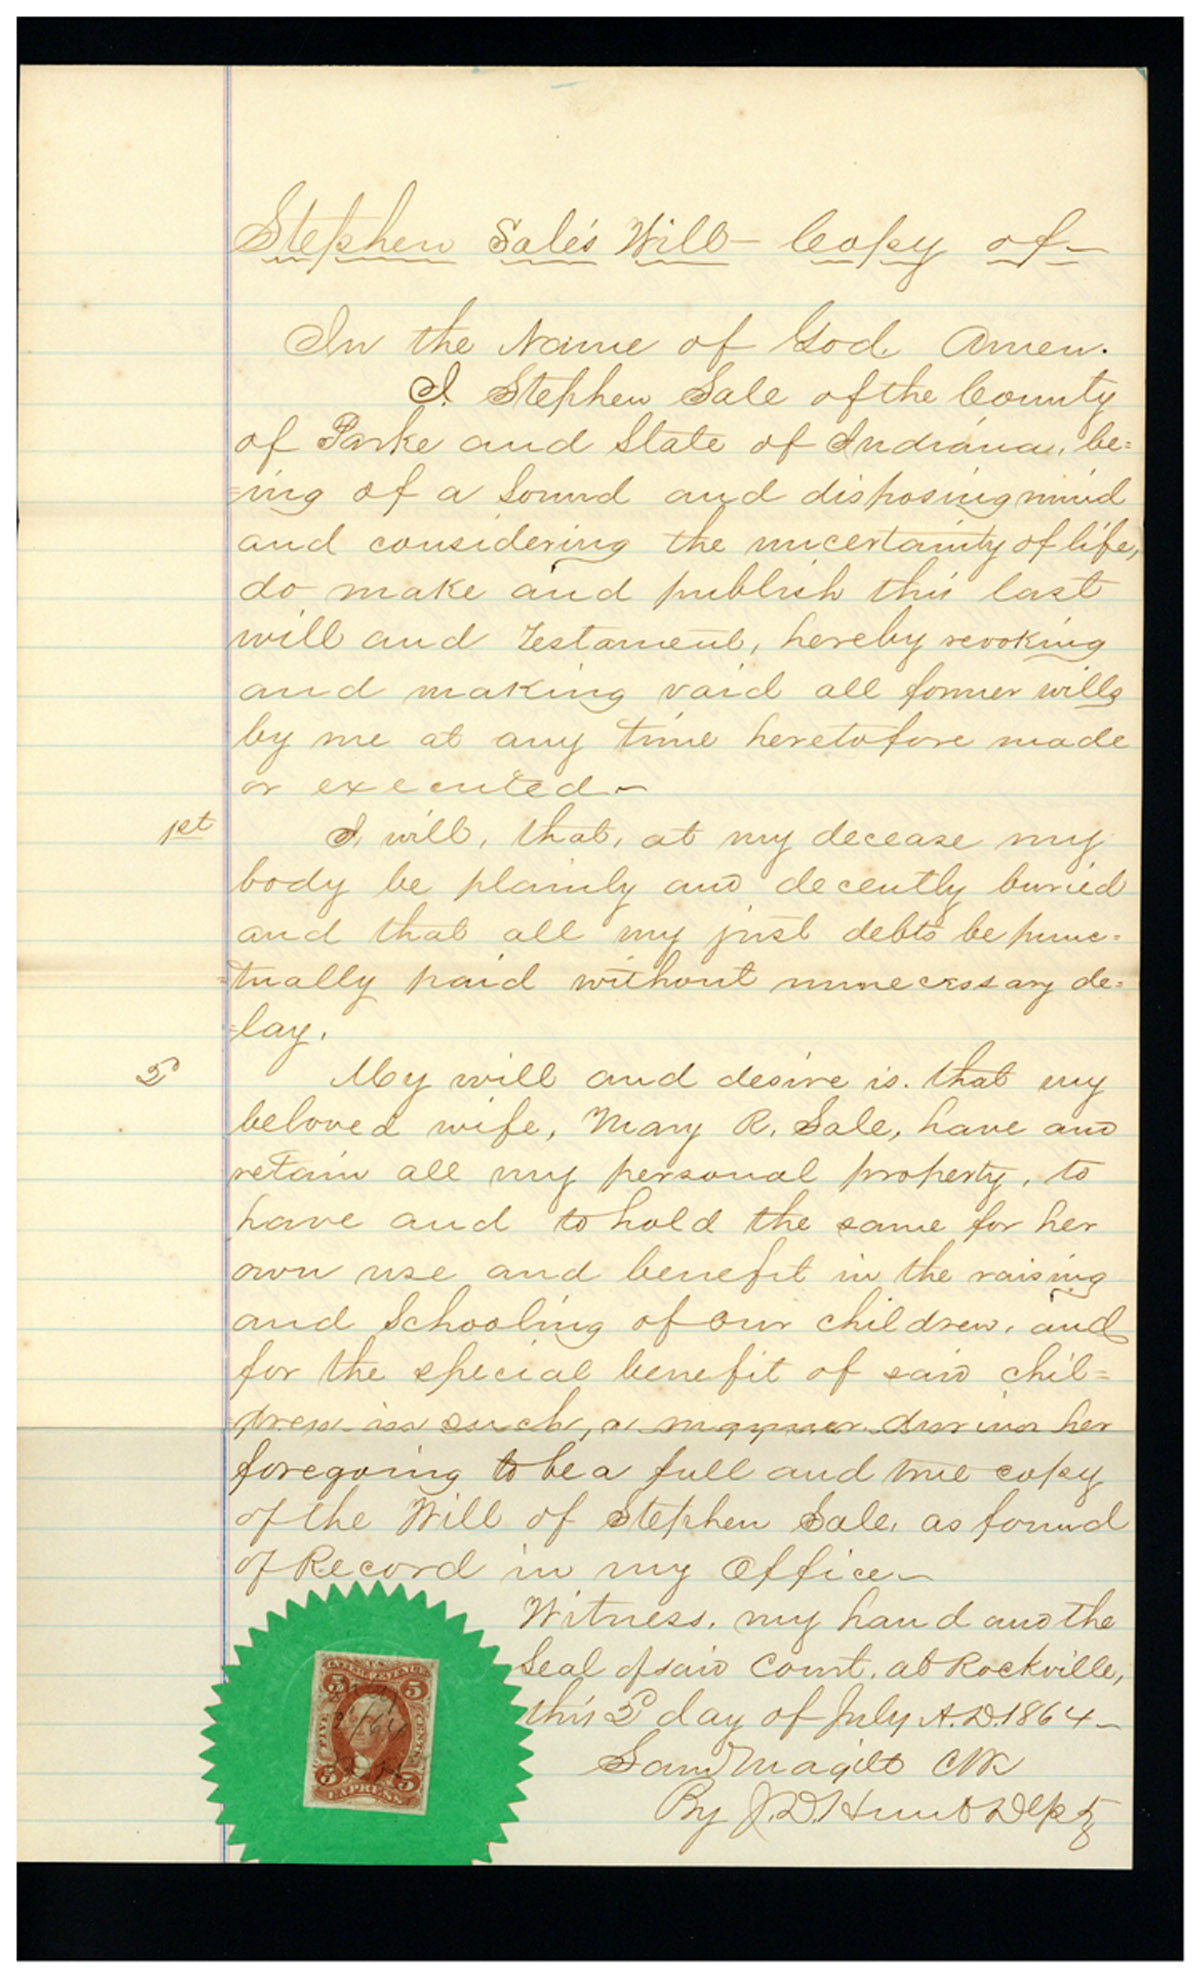 Stephen Sale's Will - Copy of -
In the Name of God. Amen.
I. Stephen Sale of the County
of Parke and State of Indiana, be=
=ing of a Sound and disposing mind
and considering the uncertainty of life,
do make and publish this last
will and Testament, hereby revoking
and making void all former wills
by me at any time heretofore made
or executed -
1st
I, will, that, at my decease my
body be plainly and decently buried
and that all my just debts be punc=
=tually paid without unnecessary de=
=lay.
2d
My will and desire is. that my
beloved wife, Mary R. Sale, have and
retain all my personal property, to
have and to hold the same for her
own use and benefit in the raising
and Schooling of our children, and
for the special benefit of said chil=
=dren in such, a manner during her
foregoing to be a full and true copy
of the Will of Stephen Sale, as found
of Record in my Office -
Witness, my hand and the
Seal of said Court, at Rockville,
this 2d day of July A.D. 1864 -
Saml Magill Clk
By J.D. Hunt Depty
5 5
FIVE CENTS
5 5
EXPRESS